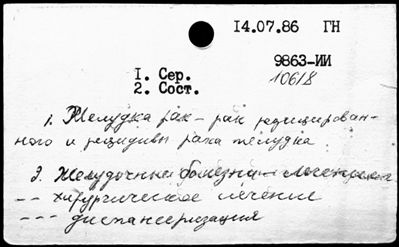 14.07.86 ГН
9863-ИИ
10618
1. Сер.
2. Сост.
1. Желудка рак – рак резецирован-
ного и рецидивы рака желудка.
2. Желудочные болезни
-- хирургическое лечение
--- диспансеризация